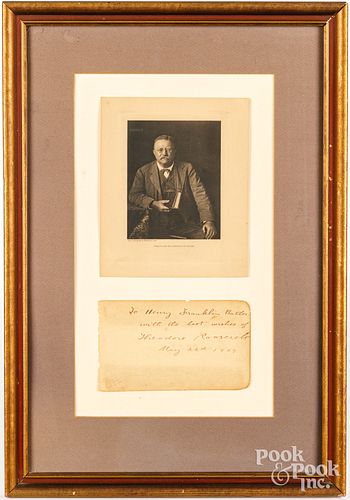 To Henry Franklin Butler
with the best wishes of
Theodore Roosevelt
May 22d 1909
POOK
& POOK
inc.